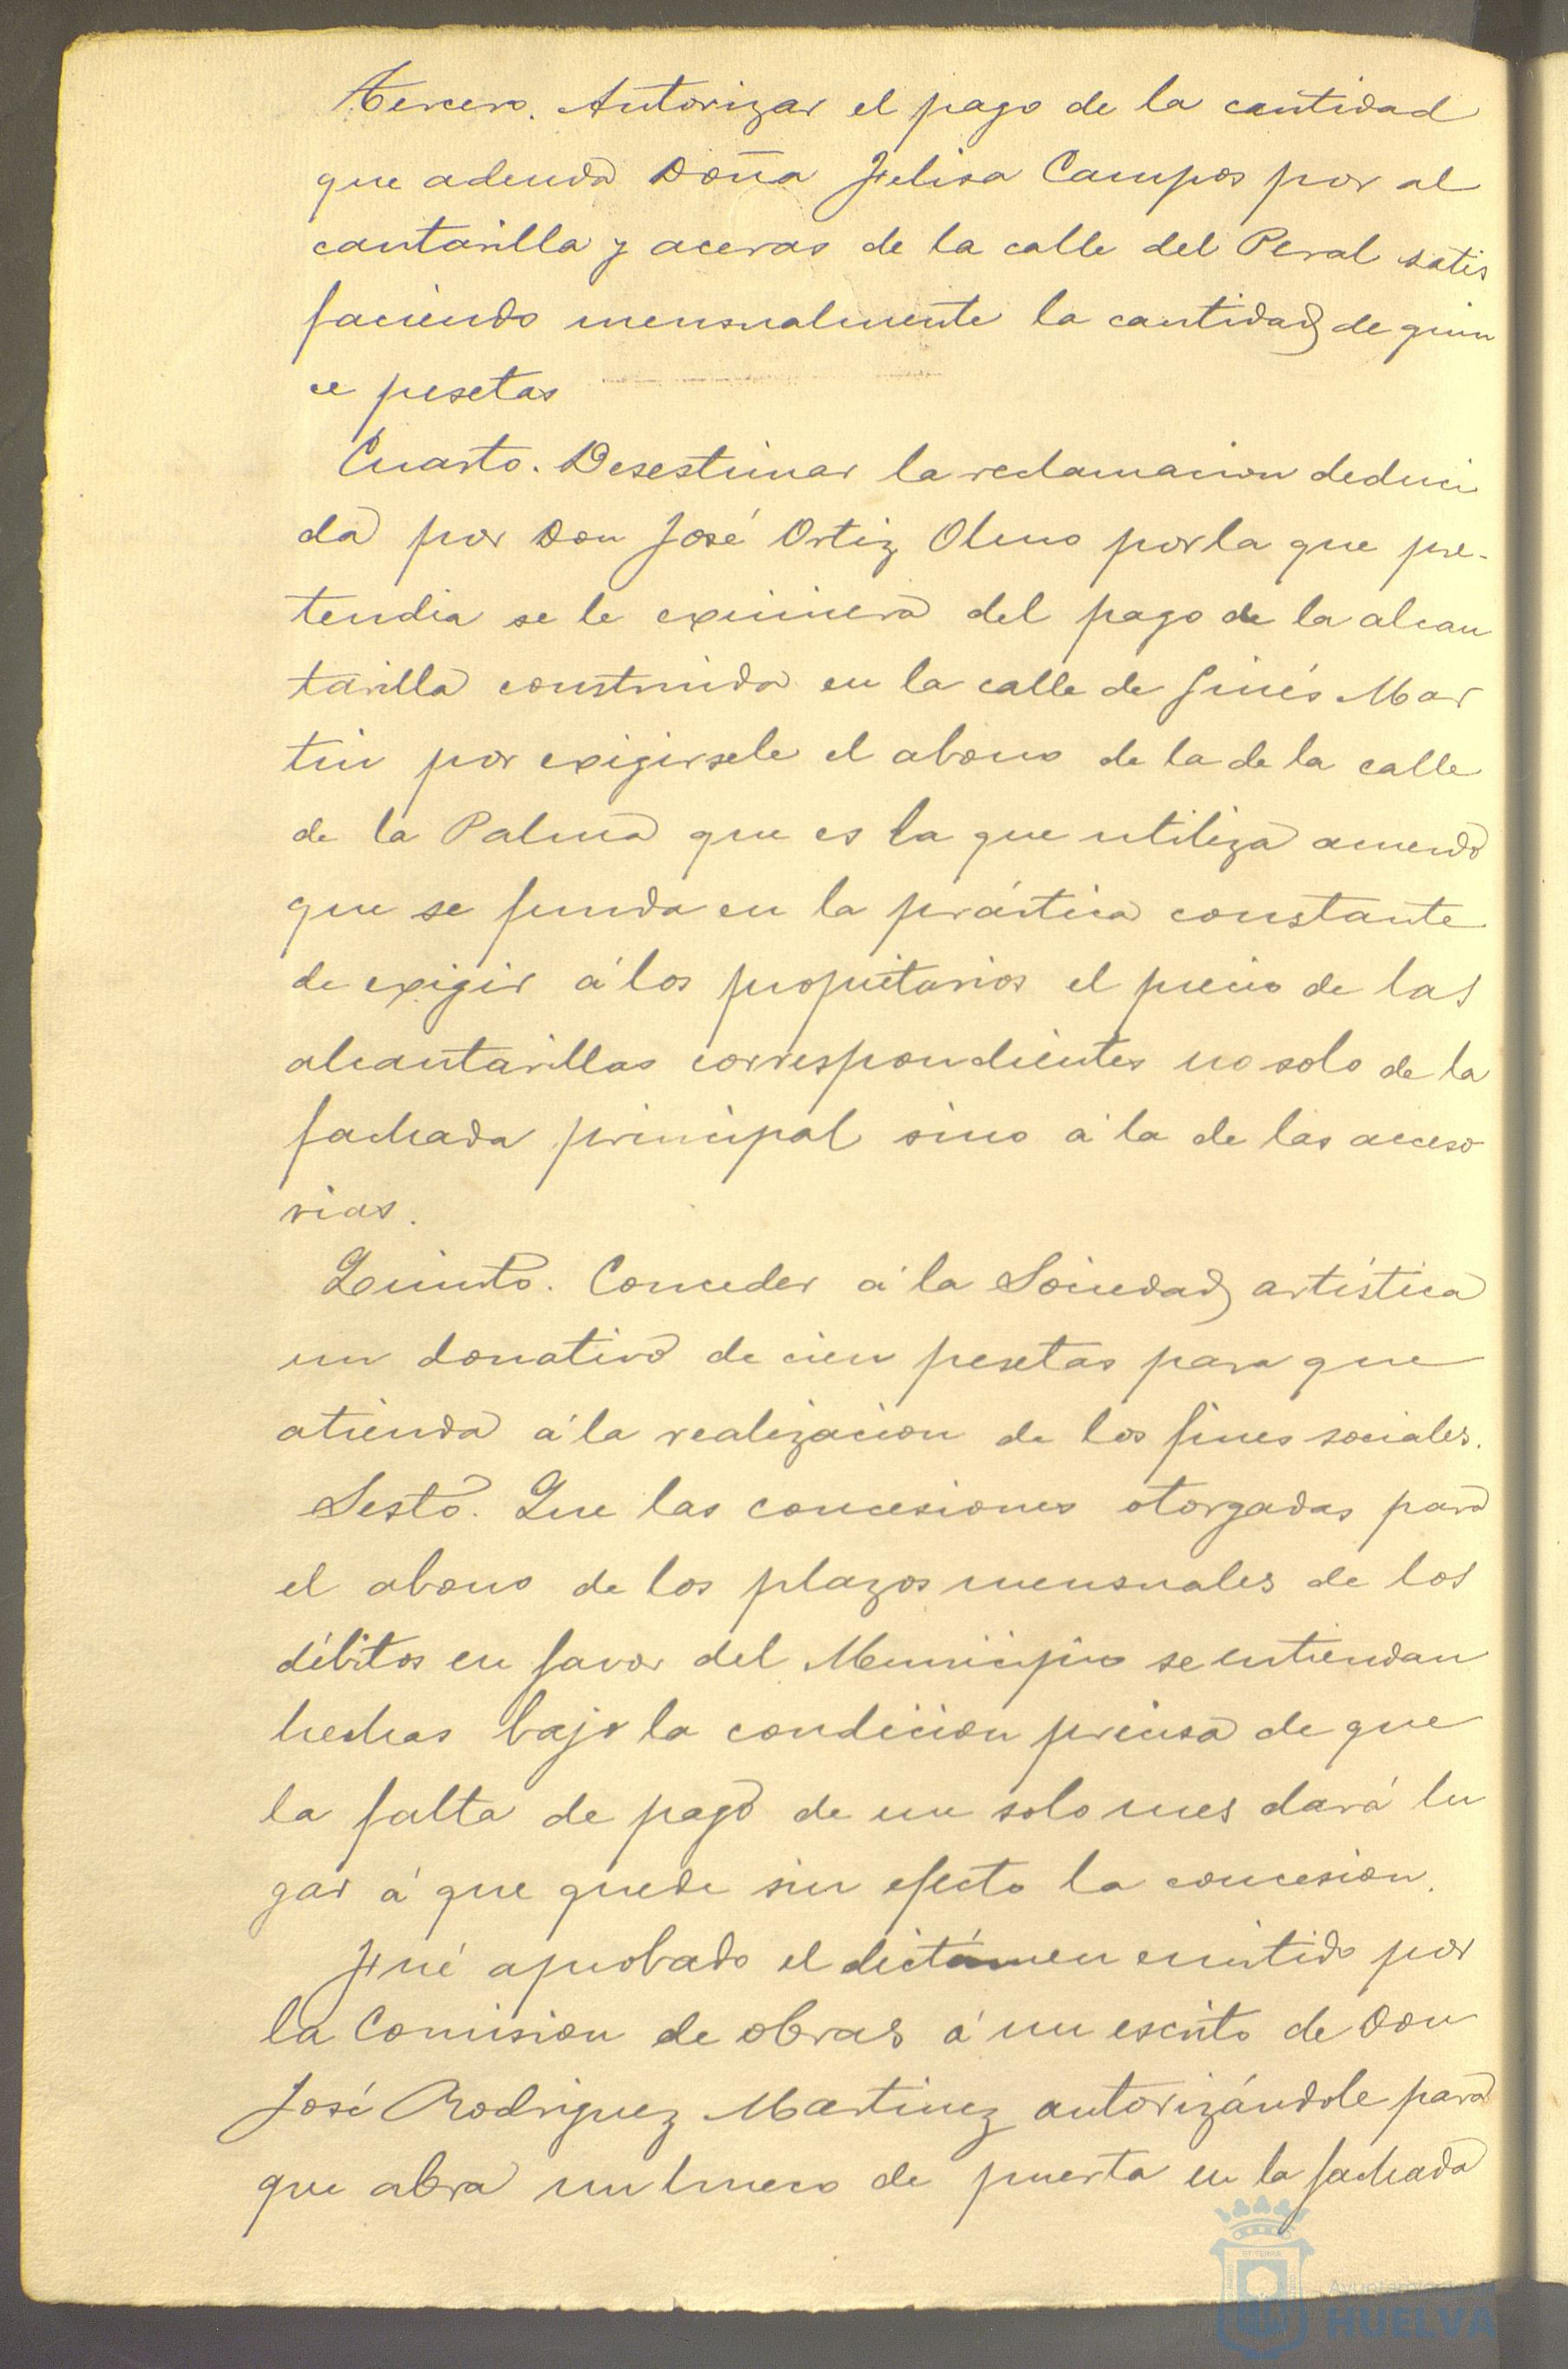 Tercero. Autorizar el pago de la cantidad
que adeuda Doña Felisa Campos por al
cantarilla y aceras de la calle del Peral satis
faciendo mensualmente la cantidad de quin
ce pesetas
Cuarto. Desestimar la reclamacion deduci
da por Don José Ortiz Olmo por la que pre-
tendia se le eximiera del pago de la alcan
tarilla construida en la calle de Ginés Mar
tin por exigirsele el abono de la de la calle
de la Palma que es la que utiliza acuerdo
que se funda en la práctica constante
de exigir á los propietarios el precio de las
alcantarillas correspondientes no solo de la
fachada principal sino á la de las acceso
rias.
Quinto. Conceder á la Sociedad artística
un donativo de cien pesetas para que
atienda á la realizacion de los fines sociales.
Sesto. Que las concesiones otorgadas para
el abono de los plazos mensuales de los
débitos en favor del Municipio se entiendan
hechas bajo la condicion precisa de que
la falta de pago de un solo mes dará lu
gar á que quede sin efecto la concesion.
Fué aprobado el dictámen emitido por
la Comision de obras á un escrito de Don
José Rodriguez Martinez autorizándole para
que abra un hueco de puerta en la fachada
Ayuntamiento
HUELVA